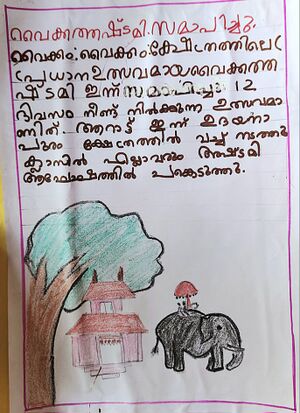 വൈക്കത്തഷ്ടമി.സമാപിച്ചു.
വൈക്കം:വൈക്കംക്ഷേത്രത്തിലെ
പ്രധാനഉത്സവമായവൈക്കത്ത
ഷ്ടമി ഇന്ന് സമാപിച്ചു. 12
ദിവസം നീണ്ട് നിൽക്കുന്ന ഉത്സവമാ
ണിത്. ആറാട്ട് ഇന്ന് ഉദയനാ
പുരം ക്ഷേത്രത്തിൽ വച്ച് നടത്തു
ക്ലാസിൽ എല്ലാവരും അഷ്ടമി
ആഘോഷത്തിൽ പങ്കെടുത്തു.